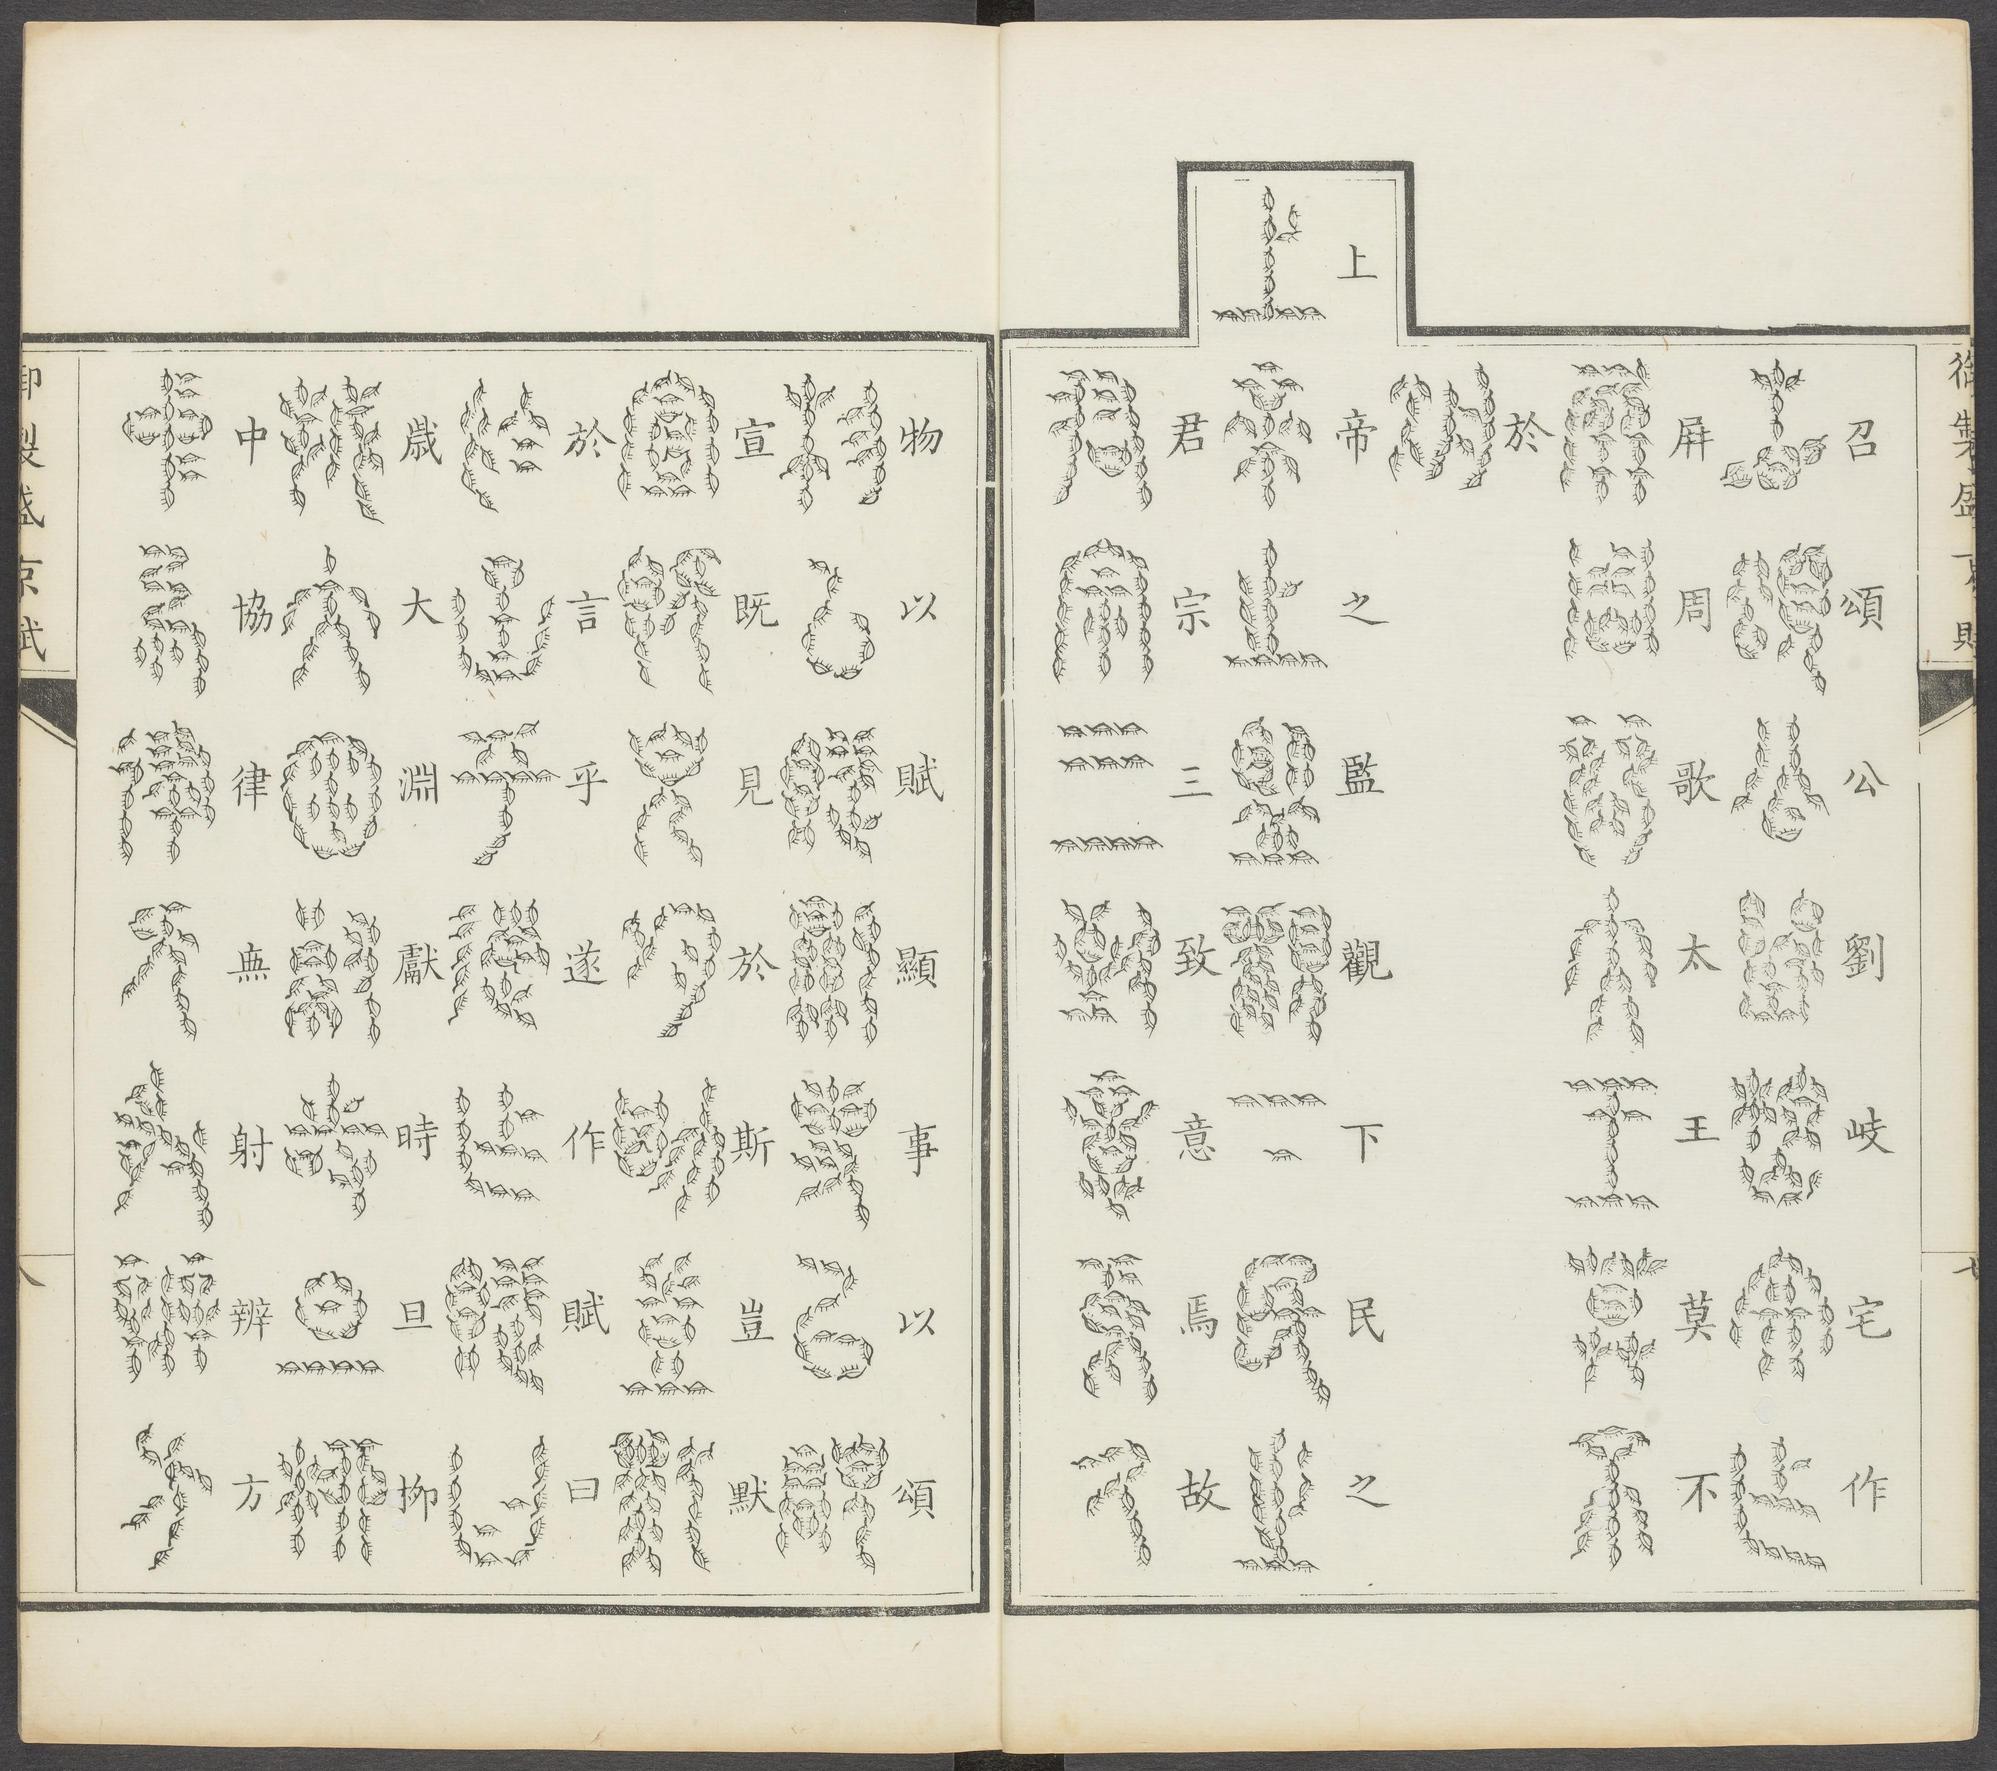 御製盛京賦
七
召頌公劉岐宅作
屛周歌太王莫不
於
上帝之監觀下民之
君宗三致意焉故
物以賦顯事以頌
宣既見於斯豈默
於言乎遂作賦曰
歲大淵獻時旦栁
中協律無射辨方
御製盛京賦
八